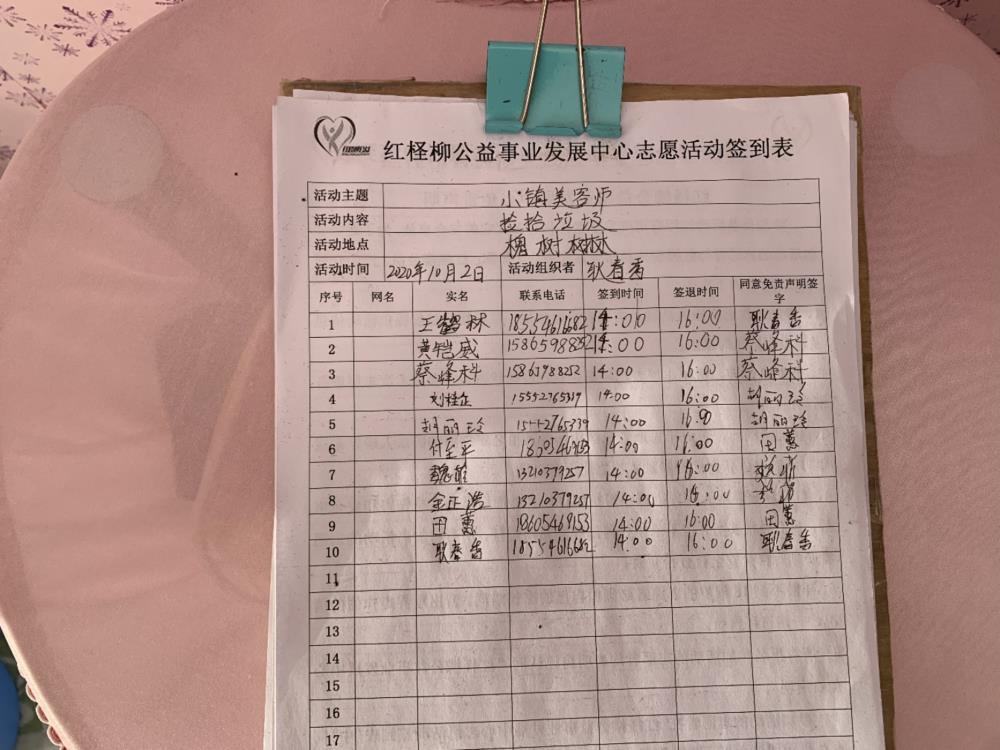 红柽柳公益事业发展中心志愿活动签到表
活动主题 小镇美容师
活动内容 捡拾垃圾
活动地点 槐树树林
活动时间 2020年10月2日 活动组织者 耿春香
序号 网名 实名 联系电话 签到时间 签退时间 同意免责声明签字
1 王鹤林 18554616682 14:00 16:00 耿春香
2 黄铠威 15865988252 14:00 16:00 蔡峰科
3 蔡峰科 15863988252 14:00 16:00 蔡峰科
4 刘桂企 15552765339 14:00 16:00 胡丽玲
5 胡丽玲 15552765339 14:00 16:00 胡丽玲
6 付至平 14:00 16:00 田蕙
7 13210379257 14:00 16:00
8 金正浩 13210379257 14:00 16:00
9 田蕙 18605469153 14:00 16:00 田蕙
10 耿春香 18554616682 14:00 16:00 耿春香
11
12
13
14
15
16
17